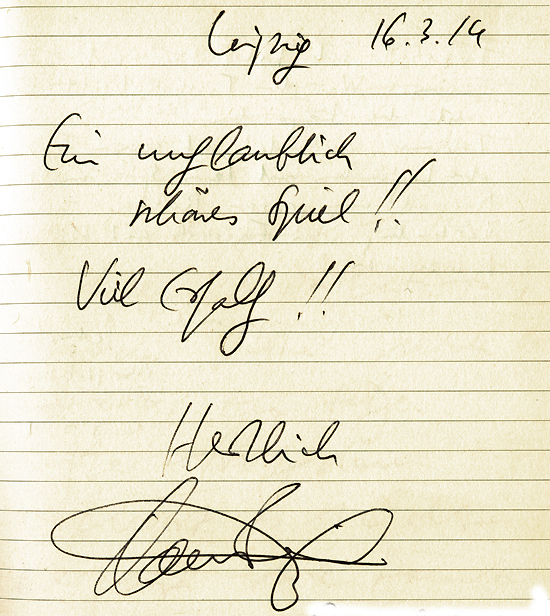 Leipzig 16.3.14
Ein unglaublich
schönes Spiel !!
Viel Erfolg !!
Herzlich